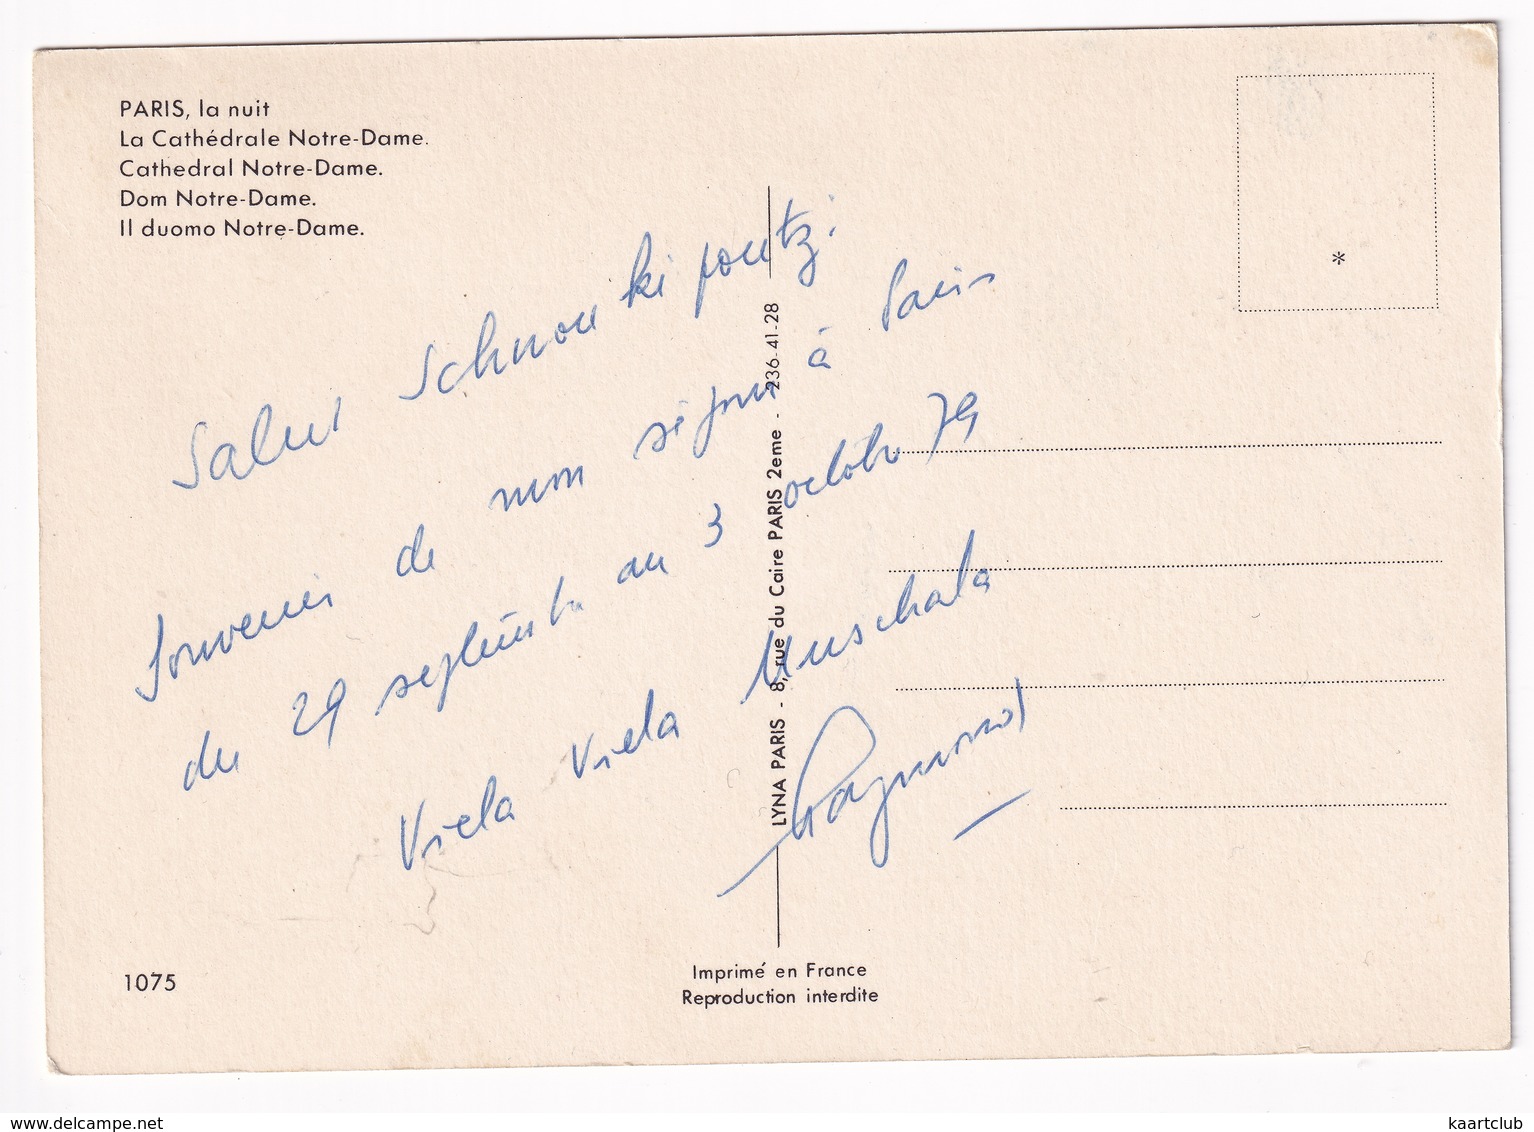 PARIS, la nuit
La Cathédrale Notre-Dame.
Cathedral Notre-Dame.
Dom Notre-Dame.
Il duomo Notre-Dame.
*
Salut Schnoukipoutz:
Souvenir de mon séjour à Paris
du 29 septembre au 3 octobre 79
Viela Viela Muschala
Raymond
LYNA PARIS - 8, rue du Caire PARIS 2eme - 236-41-28
1075
Imprimé en France
Reproduction interdite
www.delcampe.net
kaartclub